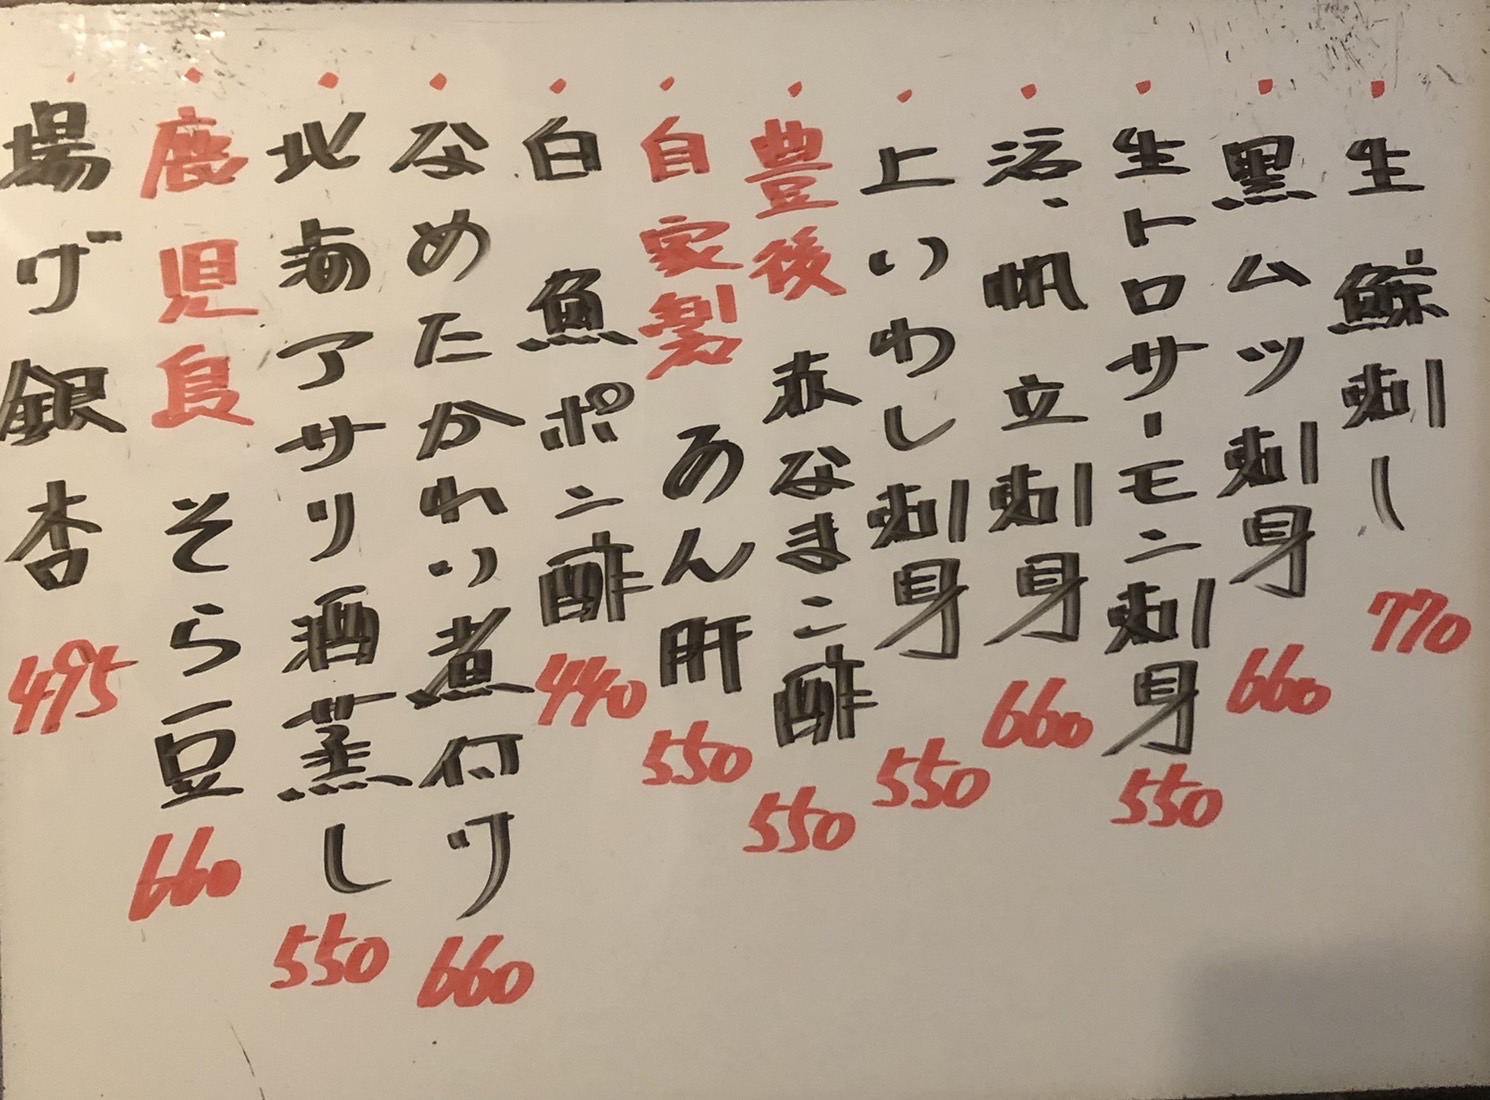 ・生鯨刺し 770
・黒ムツ刺身 660
・生トロサーモン刺身 550
・活、帆立刺身 660
・上いわし刺身 550
・豊後赤なまこ酢 550
・自家製あん肝 550
・白魚ポン酢 440
・なめたかれい煮付け 660
・北海アサリ酒蒸し 550
・鹿児島そら豆 660
・揚げ銀杏 495